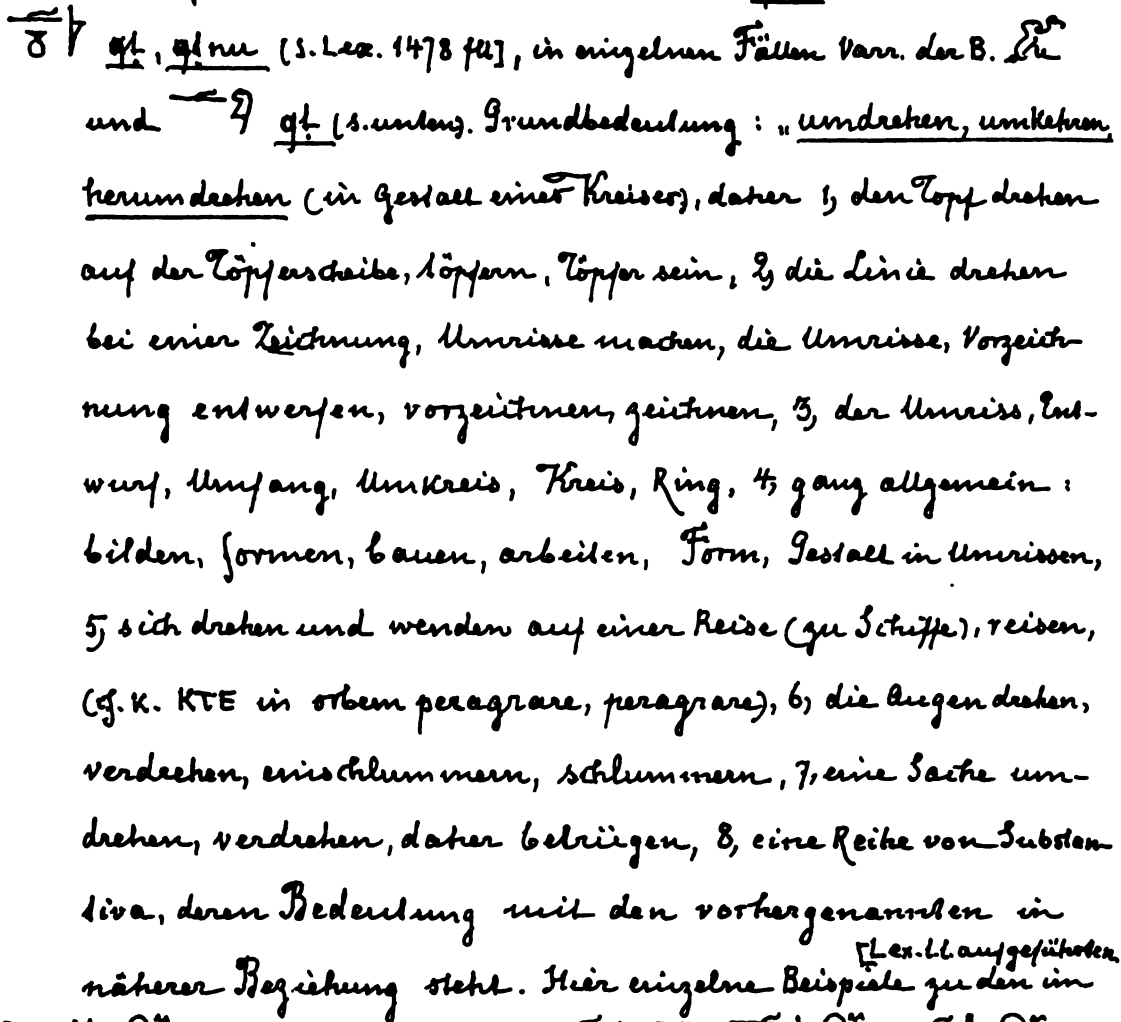 qd, qdnu (s. Lex. 1478 fll), in einzelnen Fällen Varr. der B.
und qd (s. unten). Grundbedeutung: „umdrehen, umkehren,
herumdrehen (in Gestalt eines Kreises), daher 1, den Topf drehen
auf der Töpferscheibe, töpfern, Töpfer sein, 2, die Linie drehen
bei einer Zeichnung, Umrisse machen, die Umrisse, Vorzeich-
nung entwerfen, vorzeichnen, zeichnen, 3, der Umriss, Ent-
wurf, Umfang, Umkreis, Kreis, Ring, 4, ganz allgemein:
bilden, formen, bauen, arbeiten, Form, Gestalt in Umrissen,
5, sich drehen und wenden auf einer Reise (zu Schiffe), reisen,
(cf. K. KTE in orbem peragrare, peragrare), 6, die Augen drehen,
verdrehen, einschlummern, schlummern, 7, eine Sache um-
drehen, verdrehen, daher betrügen, 8, eine Reihe von Substan
tiva, deren Bedeutung mit den vorhergenannten in
[Lex. l.l. aufgeführten
näherer Beziehung steht. Hier einzelne Beispiele zu den im